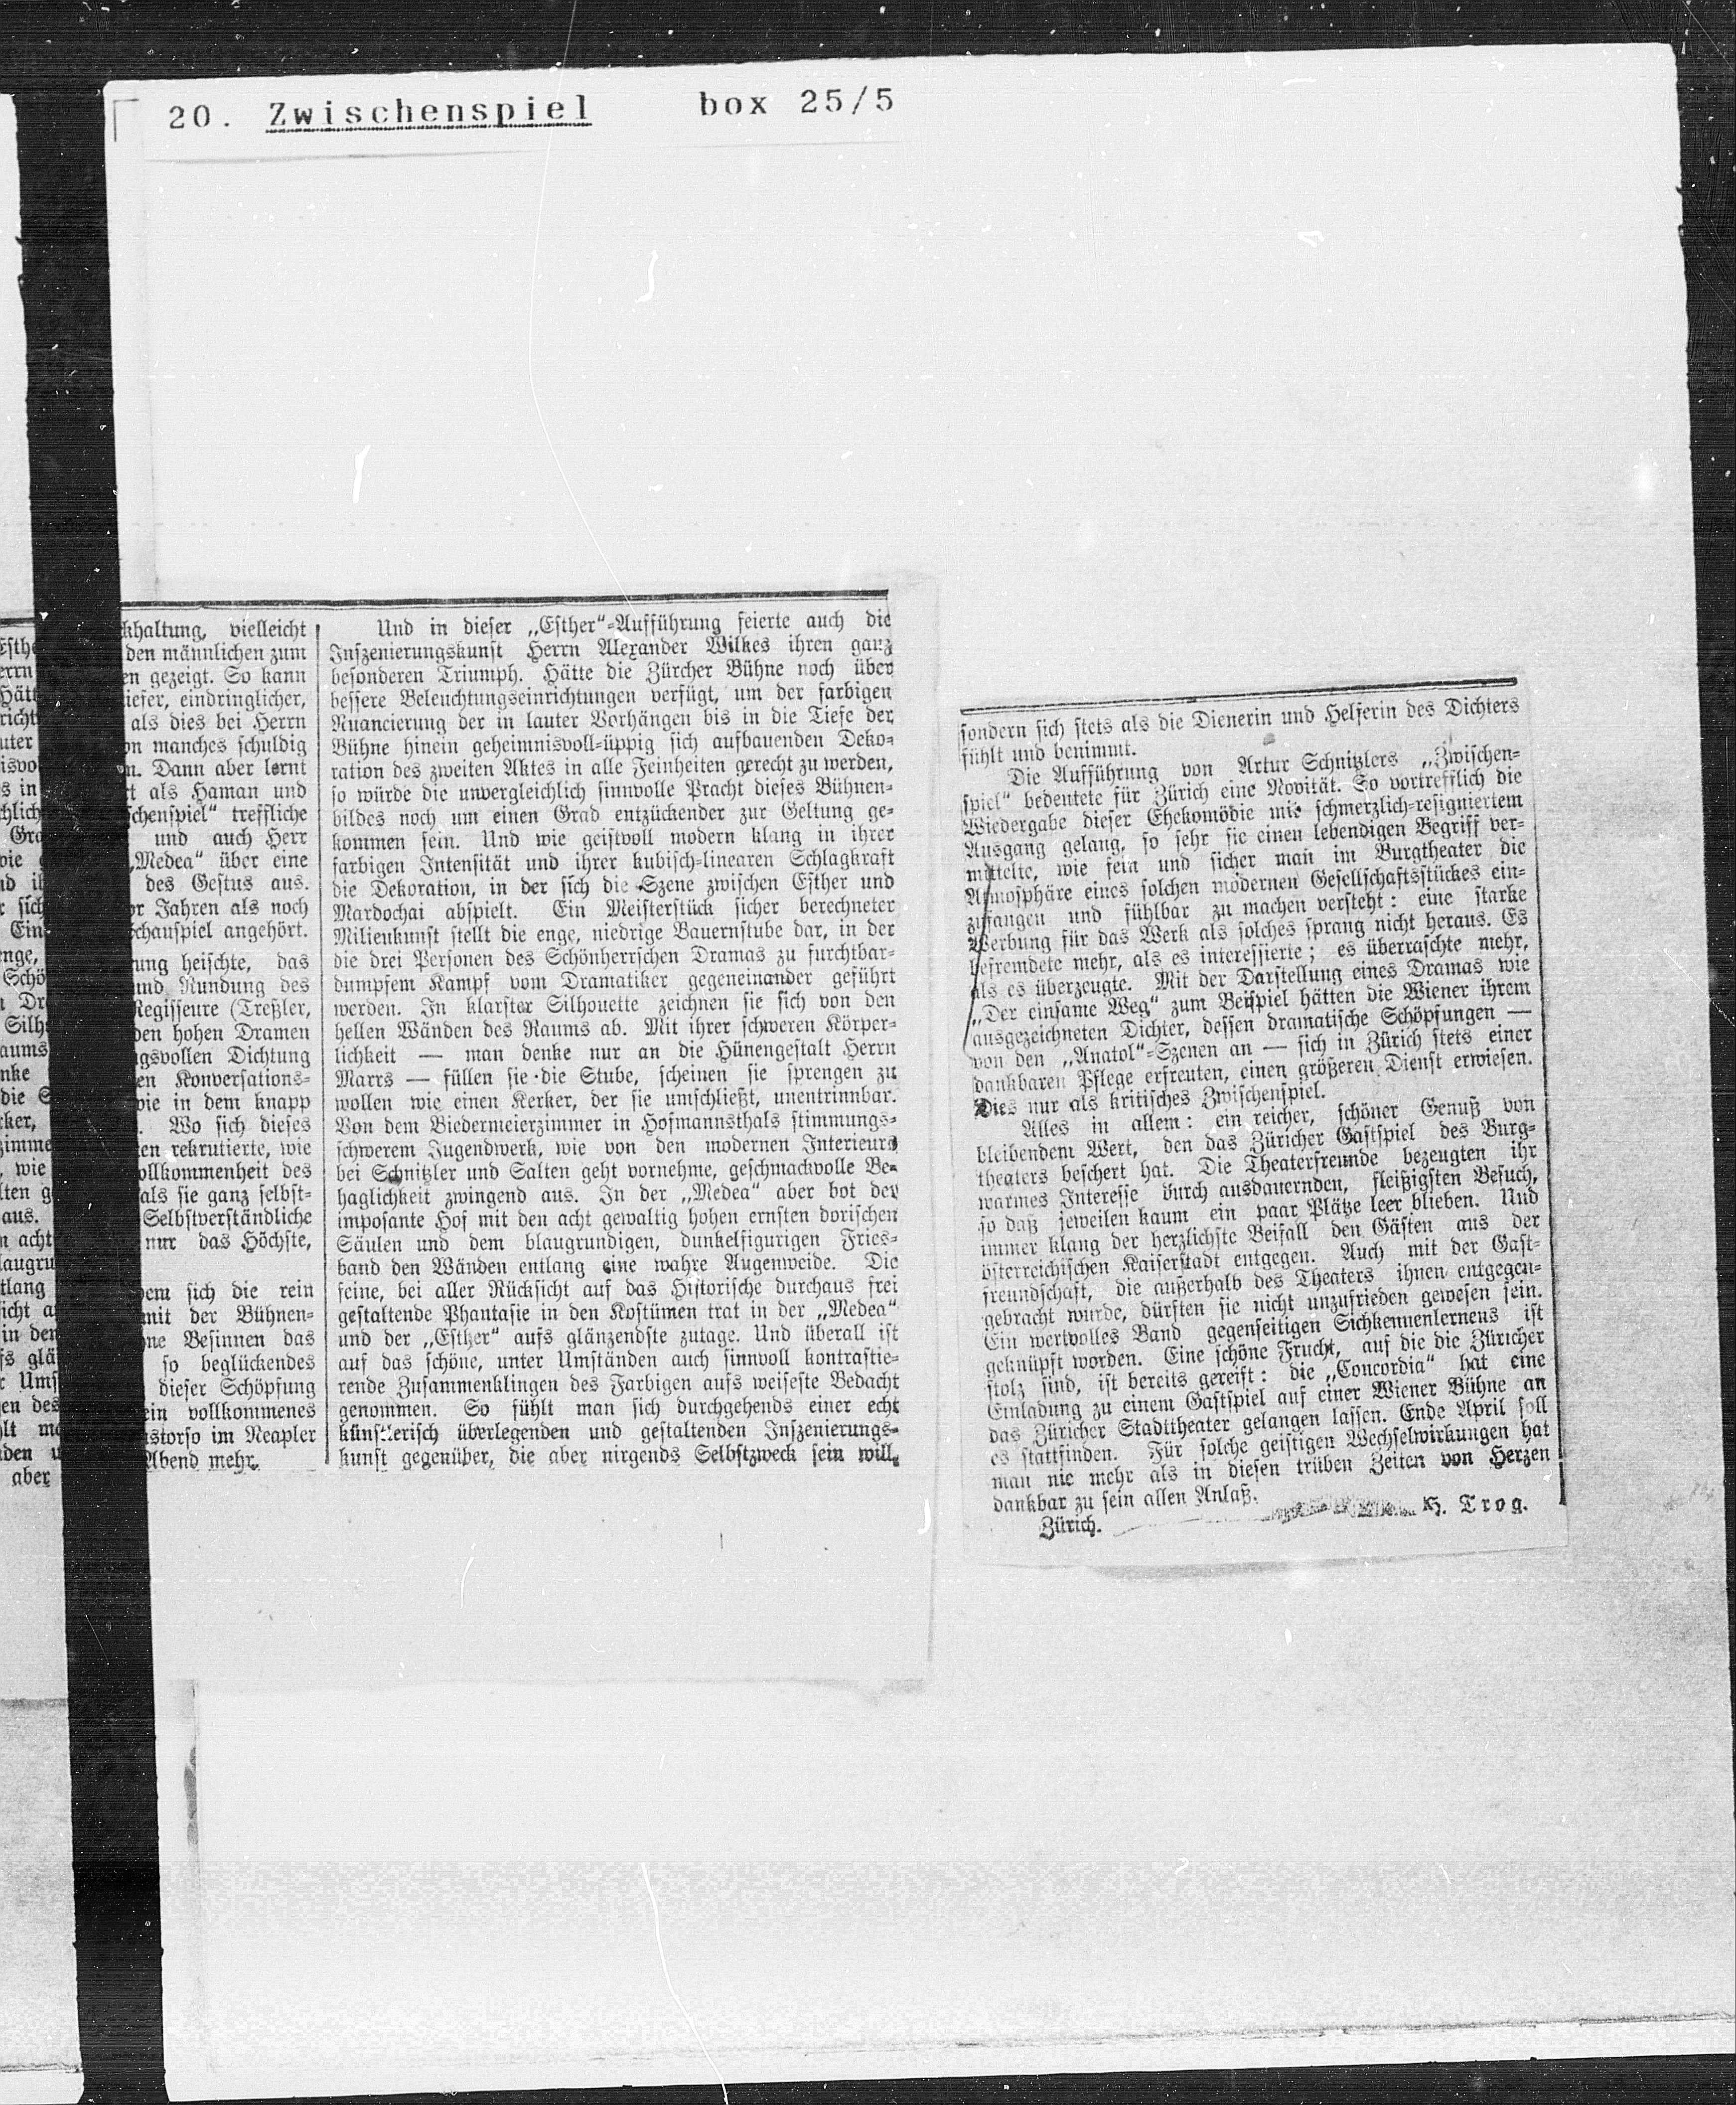 20. Zwischenspiel box 25/5
khaltung, vielleicht
den männlichen zum
en gezeigt. So kann
iefer, eindringlicher,
als dies bei Herrn
on manches schuldig
n. Dann aber lernt
t als Haman und
schenspiel" treffliche
und auch Herr
„Medea" über eine
des Gestus aus.
or Jahren als noch
chauspiel angehört.
rung heischte, das
und Rundung des
Regisseure (Treßler,
den hohen Dramen
gsvollen Dichtung
en Konversations-
wie in dem knapp
. Wo sich dieses
en rekrutierte, wie
ollkommenheit des
als sie ganz selbst-
Selbstverständliche
nur das Höchste,
dem sich die rein
mit der Bühnen-
ne Besinnen das
so beglückendes
dieser Schöpfung
ein vollkommenes
storso im Neapler
Abend mehr.
Und in dieser „Esther"-Aufführung feierte auch die
Inszenierungskunst Herrn Alexander Wilkes ihren ganz
besonderen Triumph. Hätte die Zürcher Bühne noch über
bessere Beleuchtungseinrichtungen verfügt, um der farbigen
Nuancierung der in lauter Vorhängen bis in die Tiefe der
Bühne hinein geheimnisvoll-üppig sich aufbauenden Deko-
ration des zweiten Aktes in alle Feinheiten gerecht zu werden,
so würde die unvergleichlich sinnvolle Pracht dieses Bühnen-
bildes noch um einen Grad entzückender zur Geltung ge-
kommen sein. Und wie geistvoll modern klang in ihrer
farbigen Intensität und ihrer kubisch-linearen Schlagkraft
die Dekoration, in der sich die Szene zwischen Esther und
Mardochai abspielt. Ein Meisterstück sicher berechneter
Milieukunst stellt die enge, niedrige Bauernstube dar, in der
die drei Personen des Schönherrschen Dramas zu furchtbar-
dumpfem Kampf vom Dramatiker gegeneinander geführt
werden. In klarster Silhouette zeichnen sie sich von den
hellen Wänden des Raums ab. Mit ihrer schweren Körper-
lichkeit — man denke nur an die Hünengestalt Herrn
Marrs — füllen sie die Stube, scheinen sie sprengen zu
wollen wie einen Kerker, der sie umschließt, unentrinnbar.
Von dem Biedermeierzimmer in Hofmannsthals stimmungs-
schwerem Jugendwerk, wie von den modernen Interieurs
bei Schnitzler und Salten geht vornehme, geschmackvolle Be-
haglichkeit zwingend aus. In der „Medea" aber bot der
imposante Hof mit den acht gewaltig hohen ernsten dorischen
Säulen und dem blaugrundigen, dunkelfigurigen Fries-
band den Wänden entlang eine wahre Augenweide. Die
feine, bei aller Rücksicht auf das Historische durchaus frei
gestaltende Phantasie in den Kostümen trat in der „Medea"
und der „Esther" aufs glänzendste zutage. Und überall ist
auf das schöne, unter Umständen auch sinnvoll kontrastie-
rende Zusammenklingen des Farbigen aufs weiseste Bedacht
genommen. So fühlt man sich durchgehends einer echt
künstlerisch überlegenden und gestaltenden Inszenierungs-
kunst gegenüber, die aber nirgends Selbstzweck sein will,
sondern sich stets als die Dienerin und Helferin des Dichters
fühlt und benimmt.
Die Aufführung von Artur Schnitzlers „Zwischen-
spiel" bedeutete für Zürich eine Novität. So vortrefflich die
Wiedergabe dieser Ehekomödie mit schmerzlich-resigniertem
Ausgang gelang, so sehr sie einen lebendigen Begriff ver-
mittelte, wie fein und sicher man im Burgtheater die
Atmosphäre eines solchen modernen Gesellschaftsstückes ein-
zufangen und fühlbar zu machen versteht: eine starke
Werbung für das Werk als solches sprang nicht heraus. Es
befremdete mehr, als es interessierte; es überraschte mehr,
als es überzeugte. Mit der Darstellung eines Dramas wie
„Der einsame Weg" zum Beispiel hätten die Wiener ihrem
ausgezeichneten Dichter, dessen dramatische Schöpfungen —
von den „Anatol"-Szenen an — sich in Zürich stets einer
dankbaren Pflege erfreuten, einen größeren Dienst erwiesen.
Dies nur als kritisches Zwischenspiel.
Alles in allem: ein reicher, schöner Genuß von
bleibendem Wert, den das Züricher Gastspiel des Burg-
theaters beschert hat. Die Theaterfreunde bezeugten ihr
warmes Interesse durch ausdauernden, fleißigsten Besuch,
so daß jeweilen kaum ein paar Plätze leer blieben. Und
immer klang der herzlichste Beifall den Gästen aus der
österreichischen Kaiserstadt entgegen. Auch mit der Gast-
freundschaft, die außerhalb des Theaters ihnen entgegen-
gebracht wurde, dürften sie nicht unzufrieden gewesen sein.
Ein wertvolles Band gegenseitigen Sichkennenlernens ist
geknüpft worden. Eine schöne Frucht, auf die die Züricher
stolz sind, ist bereits gereift: die „Concordia" hat eine
Einladung zu einem Gastspiel auf einer Wiener Bühne an
das Züricher Stadttheater gelangen lassen. Ende April soll
es stattfinden. Für solche geistigen Wechselwirkungen hat
man nie mehr als in diesen trüben Zeiten von Herzen
dankbar zu sein allen Anlaß.
Zürich. H. Trog.